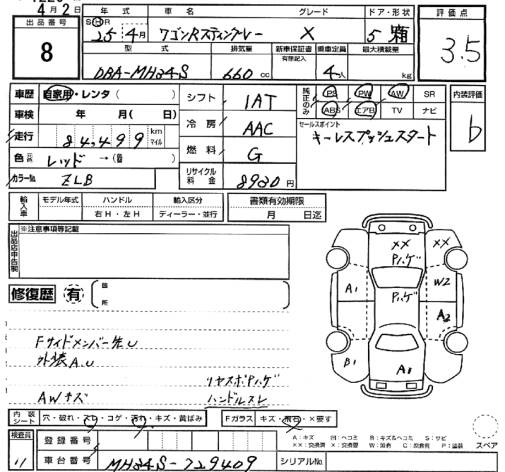 4月2日
年式 車名 グレード ドア・形状
出品番号
S H R
25 4月 ワゴンRスティングレー X 5 箱
評価点
3.5
8
型式 排気量 新車保証書 有限記入 乗車定員 最大積載量
DBA-MH34S 660 cc 4人 kg
車歴 自家用・レンタ( )
シフト 1AT
純正のみ PS PW AW SR
ABS エアB TV ナビ
内装評価
b
車検 年 月( 日)
冷房 AAC
セールスポイント
キーレスプッシュスタート
走行 84,499 km マイル
燃料 G
色 元色 レッド →( 替 )
リサイクル料金 8920円
カラーNo. ZLB
輸入車 モデル年式 ハンドル 輸入区分
右H・左H ディーラー・並行
書類有効期限
月 日迄
出品店申告欄 ※注意事項等記載
修復歴 有 箇所
Fサイドメンバー先U
外装A.U
リヤスポPハゲ
AWキズ ハンドルスレ
XX XX
Pハゲ
A1 Pハゲ W2
A2
B1 A1
内装シート 穴・破れ・スレ・コゲ・汚れ・キズ・黄ばみ
Fガラス キズ・飛石・×要す
検査員 11
登録番号
車台番号 MH34S-729409
シリアルNo.
A:キズ U:ヘコミ B:キズ&ヘコミ S:サビ
XX:交換済 X:要交換 W:波 C:腐食 P:塗装
スペア